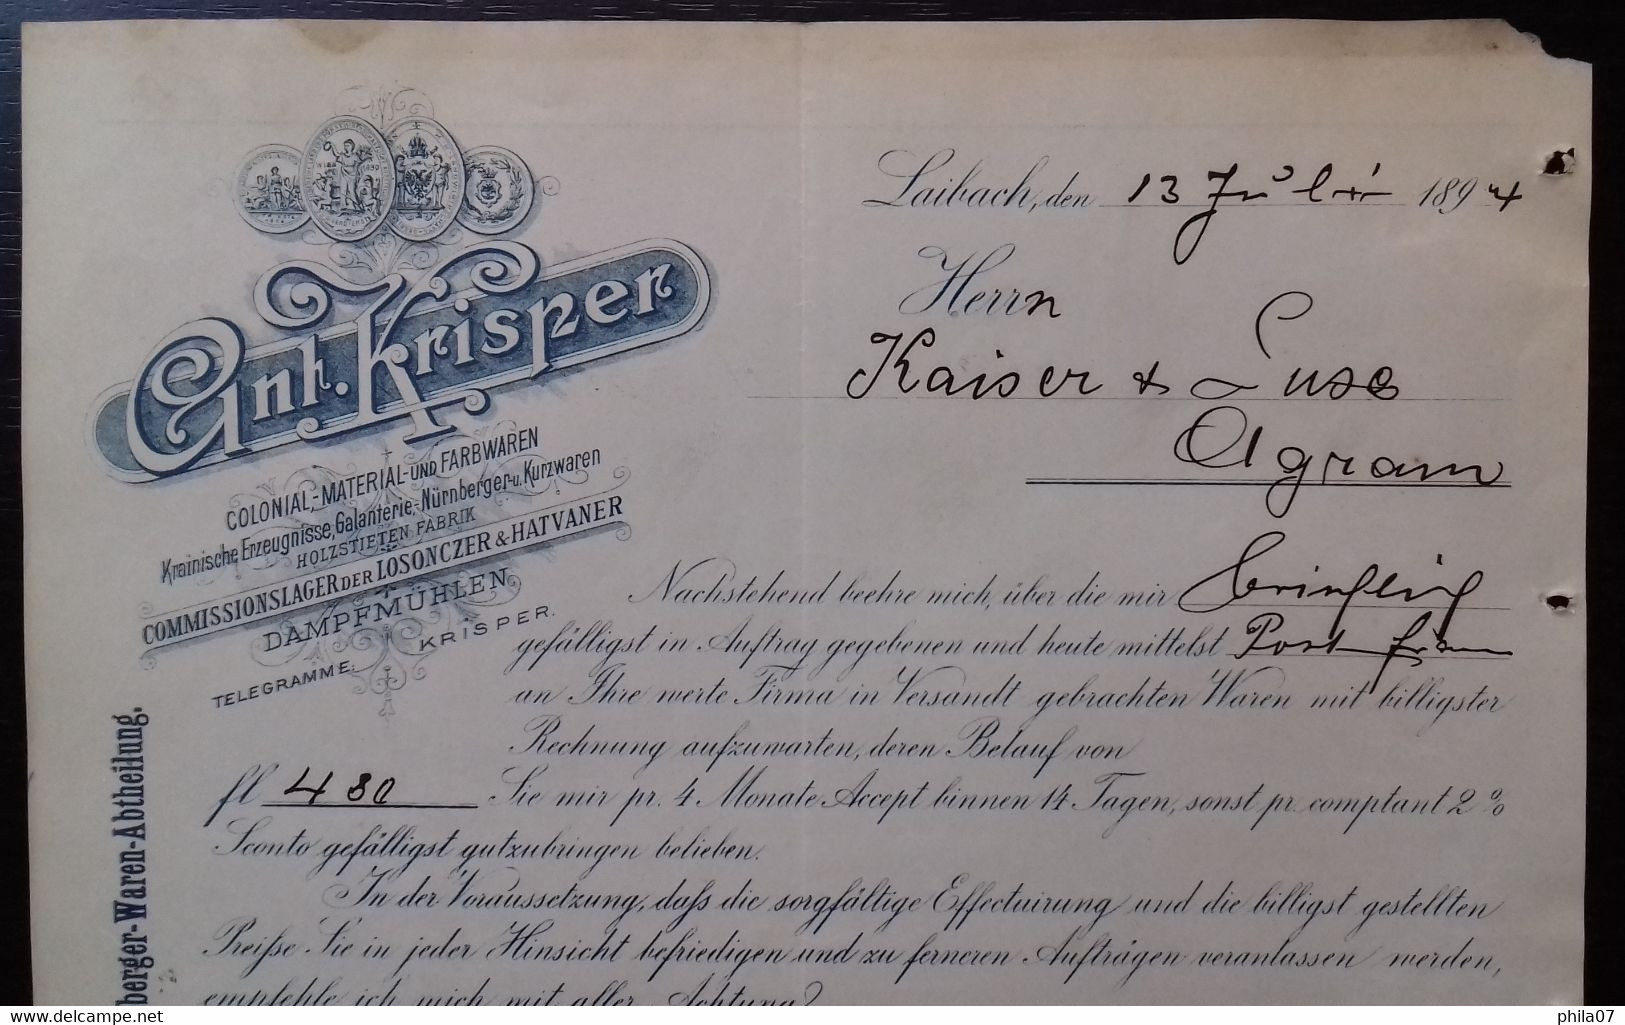 Ant. Krisper
COLONIAL,-MATERIAL-UND FARBWAREN
Krainische Erzeugnisse, Galanterie,-Nürnberger-u. Kurzwaren
HOLZSTIETEN FABRIK
COMMISSIONSLAGER DER LOSONCZER & HATVANER
DAMPFMÜHLEN
TELEGRAMME: KRISPER.
Laibach, den 13 Juli 1894
Herrn
Kaiser &
Agram
Nachstehend beehre mich, über die mir
gefälligst in Auftrag gegebenen und heute mittelst Post
an Ihre werte Firma in Versandt gebrachten Waren mit billigster
Rechnung aufzuwarten, deren Belauf von
fl 4 80 Sie mir pr. 4 Monate Accept binnen 14 Tagen, sonst pr. comptant 2 %
Sconto gefälligst gutzubringen belieben.
In der Voraussetzung, dass die sorgfältige Effectuirung und die billigst gestellten
Preiße Sie in jeder Hinsicht befriedigen und zu ferneren Aufträgen veranlassen werden,
empfehle ich mich mit aller Achtung
berger-Waren-Abtheilung.
phila07